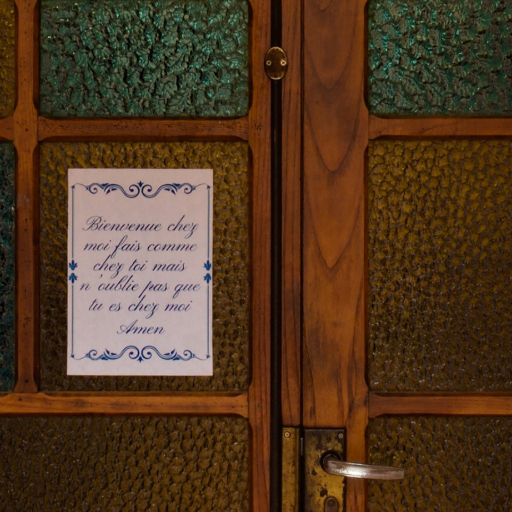 Bienvenue chez
moi fais comme
chez toi mais
n'oublie pas que
tu es chez moi
Amen